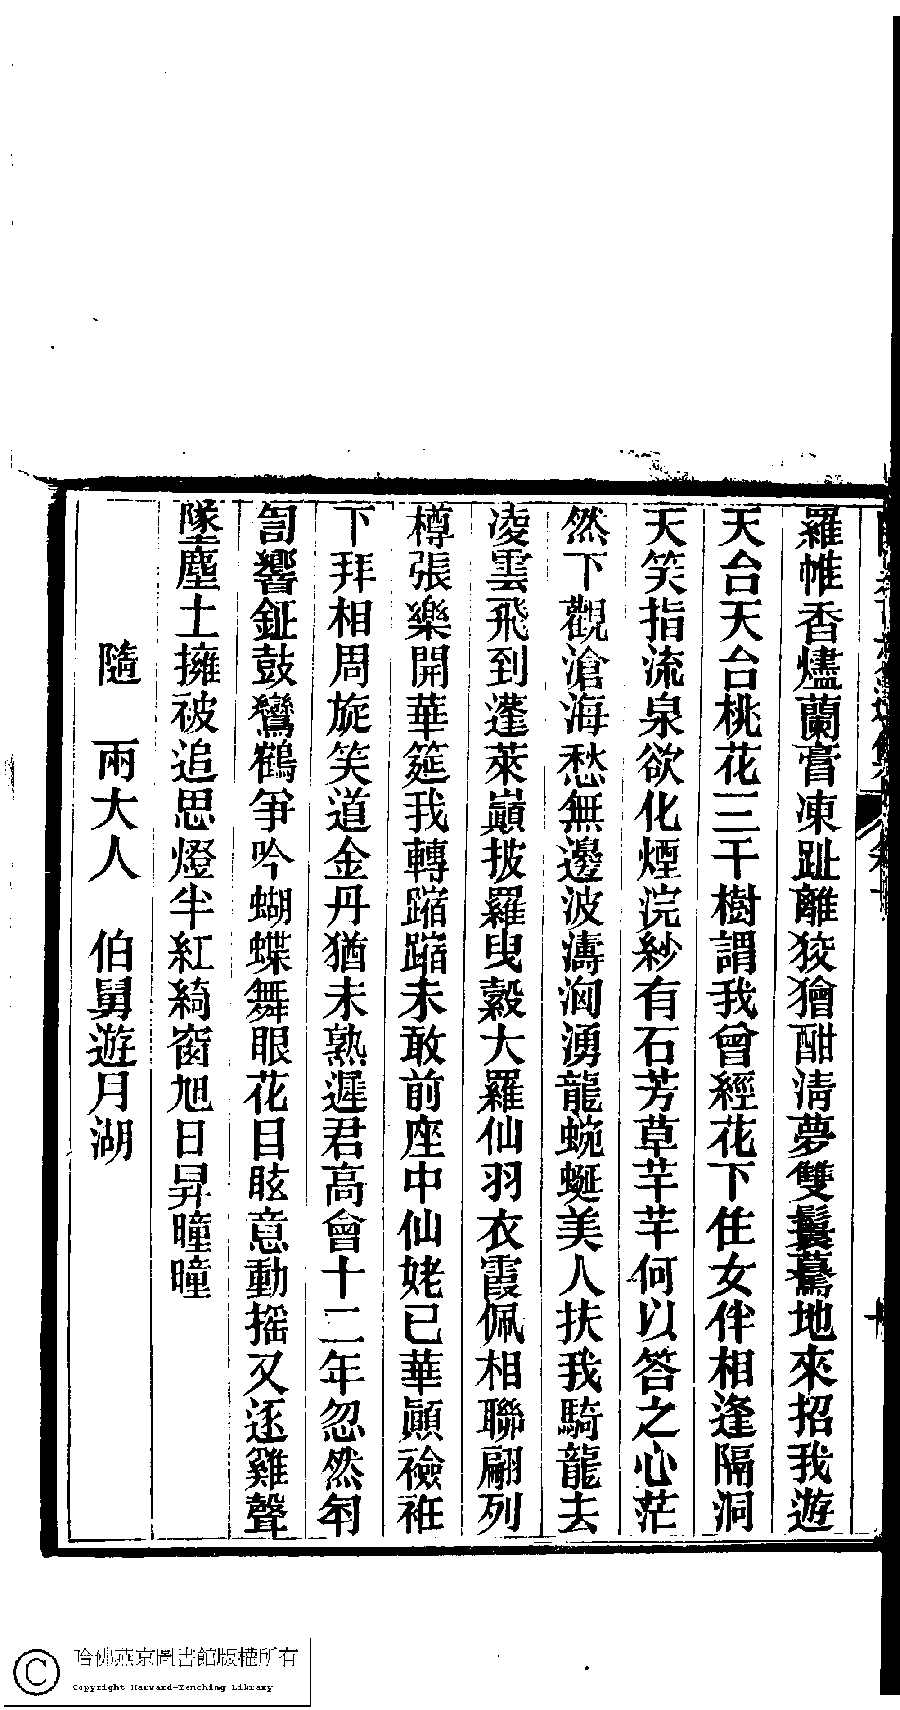 羅帷香燼蘭膏凍趾離狡獪酣淸夢雙鬟驀地來招我遊
天台天台桃花三千樹謂我曾經花下住女伴相逢隔洞
天笑指流泉欲化煙浣紗有石芳草芊芊何以答之心茫
然下觀滄海愁無邊波濤洶湧龍蜿蜒美人扶我騎龍去
凌雲飛到蓬萊巔披羅曳縠大羅仙羽衣霞佩相聯翩列
樽張樂開華筵我轉蹜蹜未敢前座中仙姥已華顚襝衽
下拜相周旋笑道金丹猶未熟遲君高會十二年忽然匉
訇響鉦鼓鸞鶴爭吟蝴蝶舞眼花目眩意動搖又逐雞聲
墜塵土擁被追思燈半紅綺窗旭日昇曈曈
隨 兩大人 伯舅遊月湖
哈佛燕京圖書館版權所有
Copyright Harvard-Yenching Library